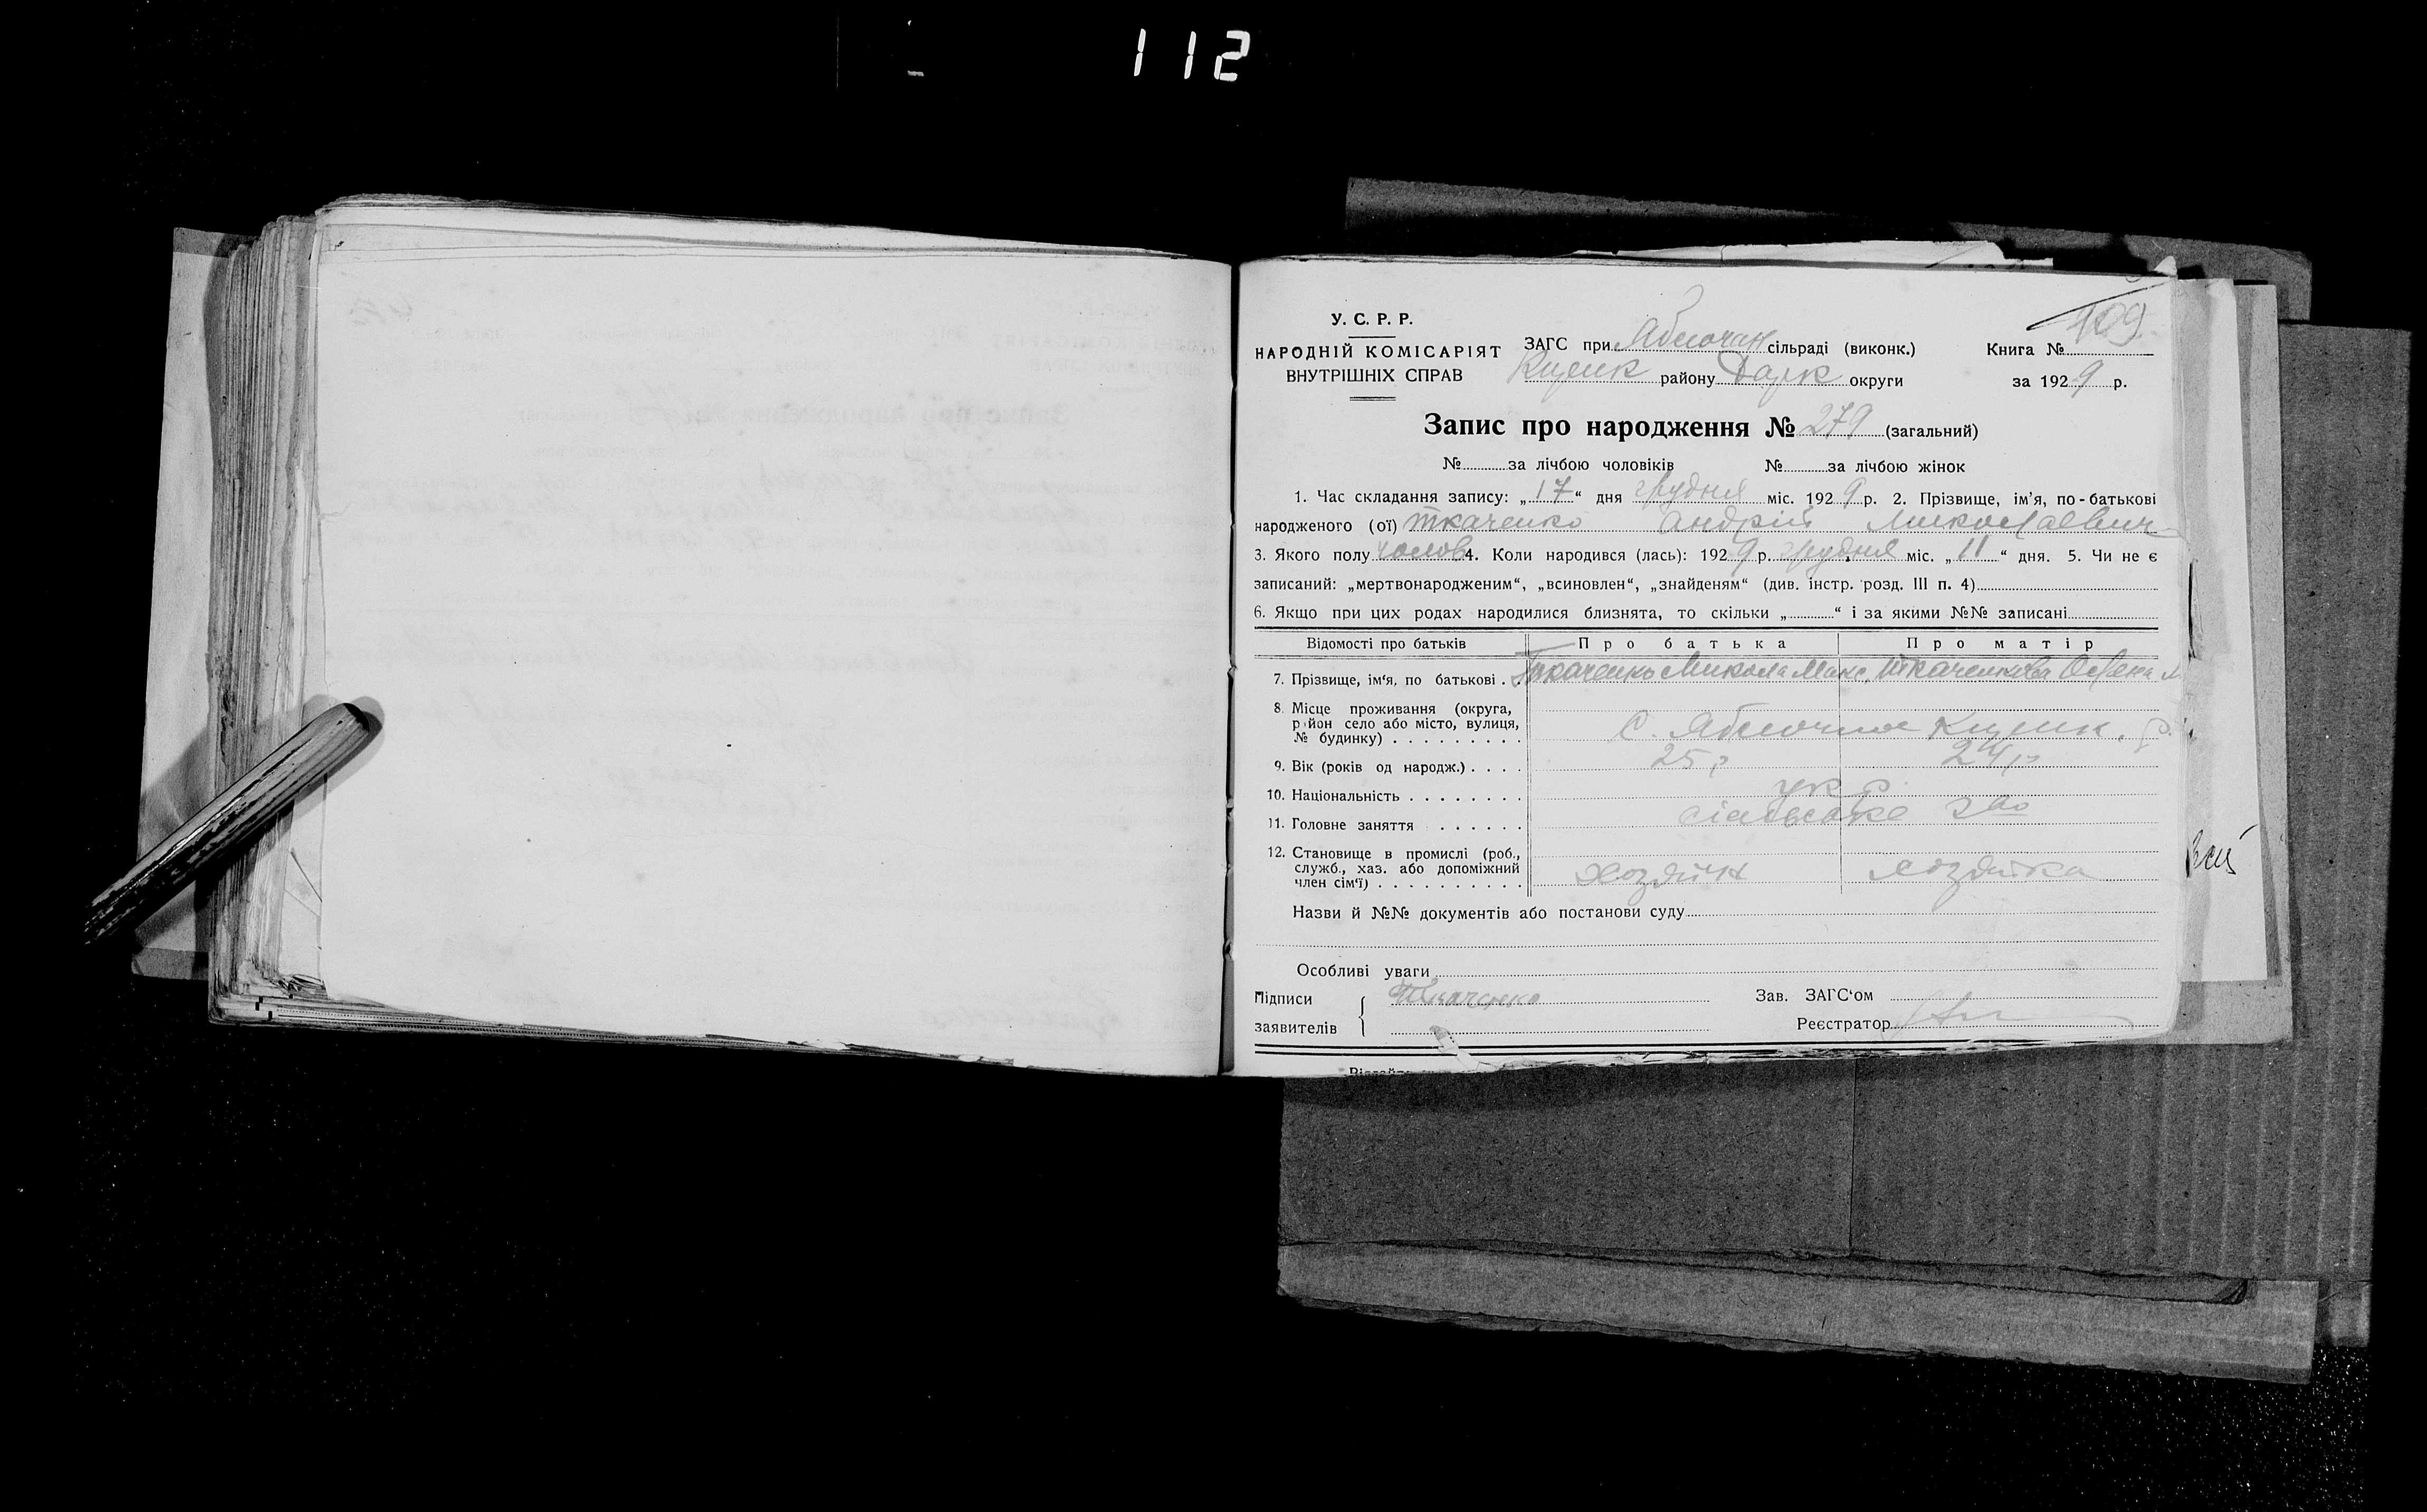 112
109
У. С. Р. Р.
НАРОДНІЙ КОМІСАРІЯТ
ВНУТРІШНІХ СПРАВ
ЗАГС при Яблочан сільраді (виконк.)
району округи
Книга №
за 1929 р.
Запис про народження № 279 (загальний)
№ за лічбою чоловіків № за лічбою жінок
1. Час складання запису: „17“ дня грудня міс. 1929 р. 2. Прізвище, ім’я, по-батькові
народженого (ої) Ткаченко Андрій Миколаевич
3. Якого полу чолов 4. Коли народився (лась): 1929 р. грудня міс. „11“ дня. 5. Чи не є
записаний: „мертвонародженим“, „всиновлен“, „знайденям“ (див. інстр. розд. III п. 4)
6. Якщо при цих родах народилися близнята, то скільки „ “ і за якими №№ записані
Відомості про батьків Про батька Про матір
7. Прізвище, ім‘я, по батькові Ткаченко Микола Макс. Ткаченкова
8. Місце проживання (округа,
район село або місто, вулиця,
№ будинку) с. Яблочное
9. Вік (років од народж.) 25 р 24 р
10. Національність укр
11. Головне заняття сільське г-во
12. Становище в промислі (роб.,
служб., хаз. або допоміжний
член сім‘ї) хозяїн хозяїка
Назви й №№ документів або постанови суду
Особливі уваги
Підписи
заявителів
Ткаченко
Зав. ЗАГС‘ом
Реєстратор